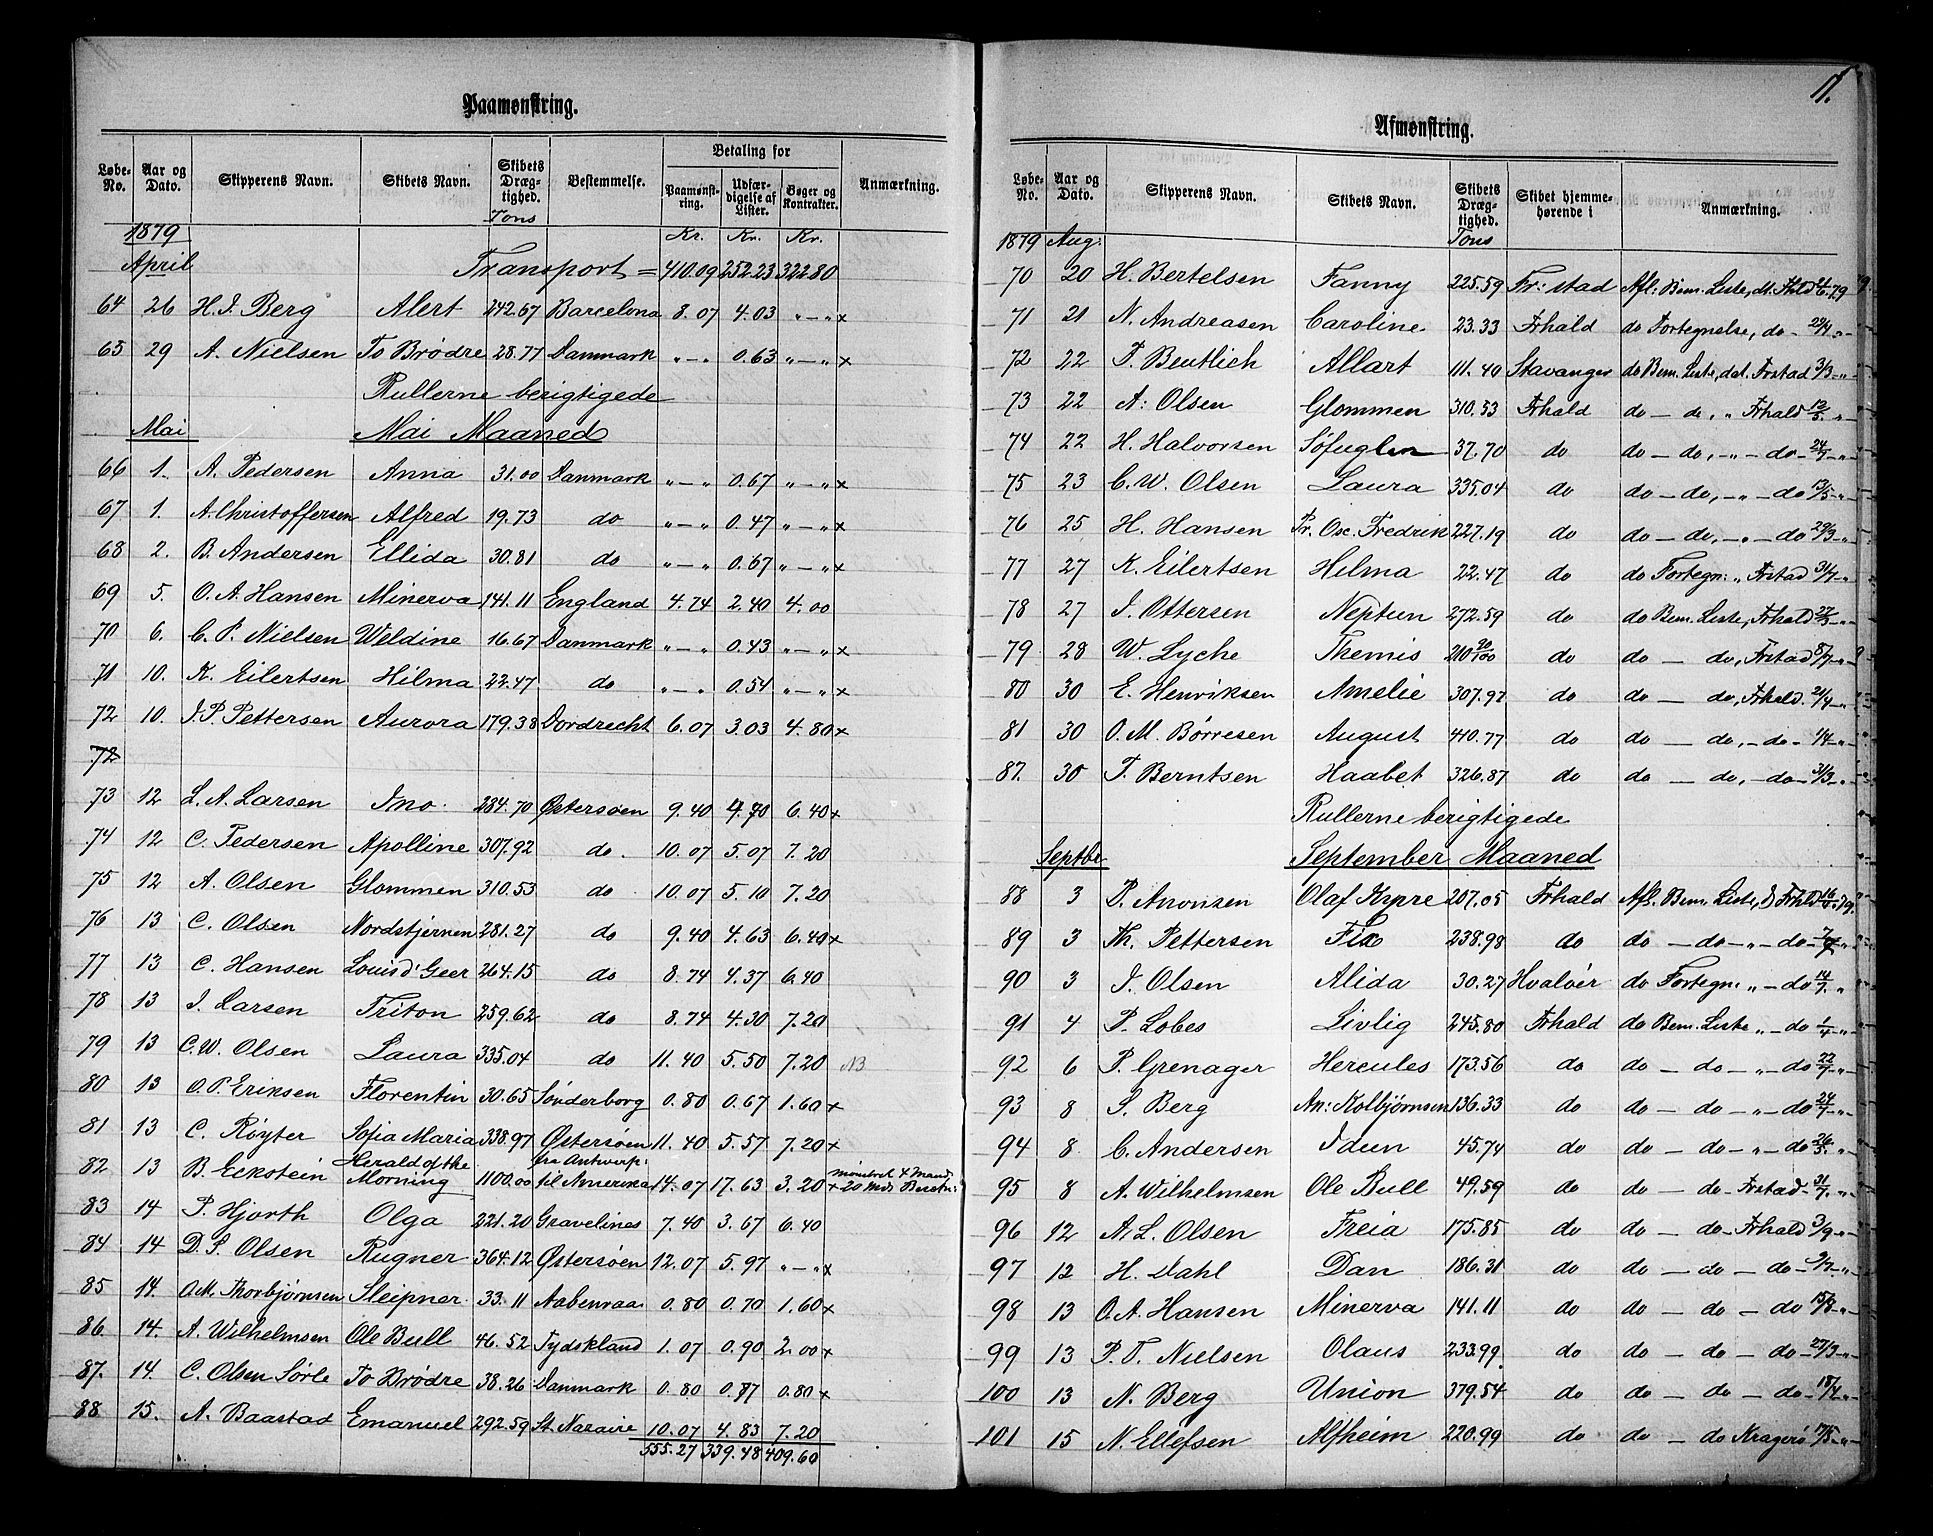 Paamønstring.
Løbe-No. Aar og Dato. Skipperens Navn. Skibets Navn. Skibets Dræg-tighed. Bestemmelse. Betaling for Paamønst-ring. Udfær-digelse af Lister. Bøger og Kontrakter. Anmærkning.
1879 Tons Kr. Kr. Kr.
April Transport = 410.09 252.23 322.80
64 26 H. J. Berg Alert 242.67 Barcelona 8.07 4.03 " — " x
65 29 A. Nielsen To Brødre 28.77 Danmark " — " 0.63 " — " x
Rullerne berigtigede
Mai Mai Maaned
66 1. A. Pedersen Anna 31.00 Danmark " — " 0.67 " — " x
67 1. A. Christoffersen Alfred 19.73 do " — " 0.47 " — " x
68 2. B. Andersen Ellida 30.81 do " — " 0.67 " — " x
69 5. O. A. Hansen Minerva 141.11 England 4.74 2.40 4.00
70 6. C. P. Nielsen Weldine 16.67 Danmark " — " 0.43 " — " x
71 10. K. Eilertsen Hilma 22.47 do " — " 0.54 " — " x
72 10. J. P. Pettersen Aurora 179.38 Dordrecht 6.07 3.03 4.80 x
72
73 12 L. A. Larsen Ino 284.70 Østersøen 9.40 4.70 6.40 x
74 12 C. Pedersen Apolline 307.92 do. 10.07 5.07 7.20
75 12 A. Olsen Glommen 310.53 do 10.07 5.10 7.20
76 13 C. Olsen Nordstjernen 281.27 do 9.40 4.63 6.40 x
77 13 C. Hansen Louis d'Geer 264.15 do 8.74 4.37 6.40
78 13 J. Larsen Triton 259.62 do 8.74 4.30 7.20
79 13 C. W. Olsen Laura 335.04 do 11.40 5.50 7.20 NB
80 13 O. P. Eriksen Florentin 30.65 Sønderborg 0.80 0.67 1.60 x
81 13 C. Røyter Sofia Maria 338.97 Østersøen 11.40 5.57 7.20 x
82 13 B. Eckstein Herald of the Morning 1100.00 fra Antwerp: til Amerika 14.07 17.63 3.20 mønstret 4 Mand x 20
83 14 P. Hjorth Olga 221.20 Gravelines 7.40 3.67 6.40
84 14 D. S. Olsen Rugner 364.12 Østersøen 12.07 5.97 " — " x
85 14. A. M. Thorbjørnsen Sleipner 33.11 Aabenraa 0.80 0.70 1.60 x
86 14. A. Wilhelmsen Ole Bull 46.52 Tydskland 1.07 0.90 2.00 x
87. 14. C. Olsen Sørle To Brødre 38.26 Danmark 0.80 0.77 0.80 x
88 15. A. Baastad Emanuel 292.59 St. Nazaire 10.07 4.83 7.20
555.27 339.48 409.60
11.
Afmønstring.
Løbe-No. Aar og Dato. Skipperens Navn. Skibets Navn. Skibets Dræg-tighed. Skibet hjemme-hørende i Anmærkning.
1879 Aug: Tons
70 20 H. Bertelsen Fanny 225.59 Fr: stad Afl: Bem. Liste, dt. Fhld
71 21 N. Andreasen Caroline 23.33 Frhald do Fortegnelse, do - 29/4 "
72 22 P. Bentlich Allart 111.40 Stavanger do Bem. Liste, dat. Frstad 3/3 - "
73 22 A: Olsen Glommen 310.53 Frhald do — do, " Frhald 12/5. "
74 22 H. Halvorsen Søfuglen 37.70 do do — do, - " - do - 24/7 - "
75 23 C. W. Olsen Laura 335.04 do do — do, - " - do 13/5 - "
76 25 H. Hansen Pr. Osc. Fredrik 227.19 do do — do, - " - do 29/3 - "
77 27 K. Eilertsen Hilma 22.47 do do Fortegn: " Frstad 31/7 - "
78 27 J. Ottersen Neptun 272.59 do do Bem. Liste, Frhald 27/3 - "
79 28 W. Lyche Themis 210 90/100 do do — do, Frstad 8/7 - "
80 30 E. Henriksen Amelie 307.97 do do — do, Frhald. 21/4 - "
81 30 O. M. Børresen August 410.77 do do — do, - do - 1/4 - "
87. 30 T. Berntsen Haabet 326.87 do do — do, - do - 31/3 - "
Rullerne berigtigede
Septbr September Maaned
88 3 P. Aronsen Olaf Kyrre 207.05 Frhald Afl. Bem. Liste, D Frhld
89 3 Th. Pettersen Fix 238.98 do do — do - " - do -
90 3 J. Olsen Alida 30.27 Hvaløer do Fortegn: " - do 14/7. "
91 4 P. Lobes Livlig 245.80 Frhald do Bem. Liste " - do 1/4 - "
92 6 P. Grenager Hercules 173.56 do do — do - " - do 22/7 - "
93 8 S. Berg An: Kolbjørnsen 136.33 do do — do - " - do 24/7 - "
94 8 C. Andersen Idun 45.74 do do — do - " - do 26/5. "
95 8 A. Wilhelmsen Ole Bull 49.59 do do — do - Frstad - 31/7. "
96 12 A. L. Olsen Freia 175.85 do do — do - Frhald 3/9 - "
97 12 H. Dahl Dan 186.31 do do — do — do - 9/7. "
98 13 O. A. Hansen Minerva 141.11 do do — do — do 15/8 - "
99 13 P. T. Nielsen Olaus 233.99 do do — do — do - 27/3 - "
100 13 N. Berg Union 379.54 do do — do — do - 18/4 - "
101 15 N. Ellefsen Alfheim 220.99 do do — do Kragerø 17/5 - "